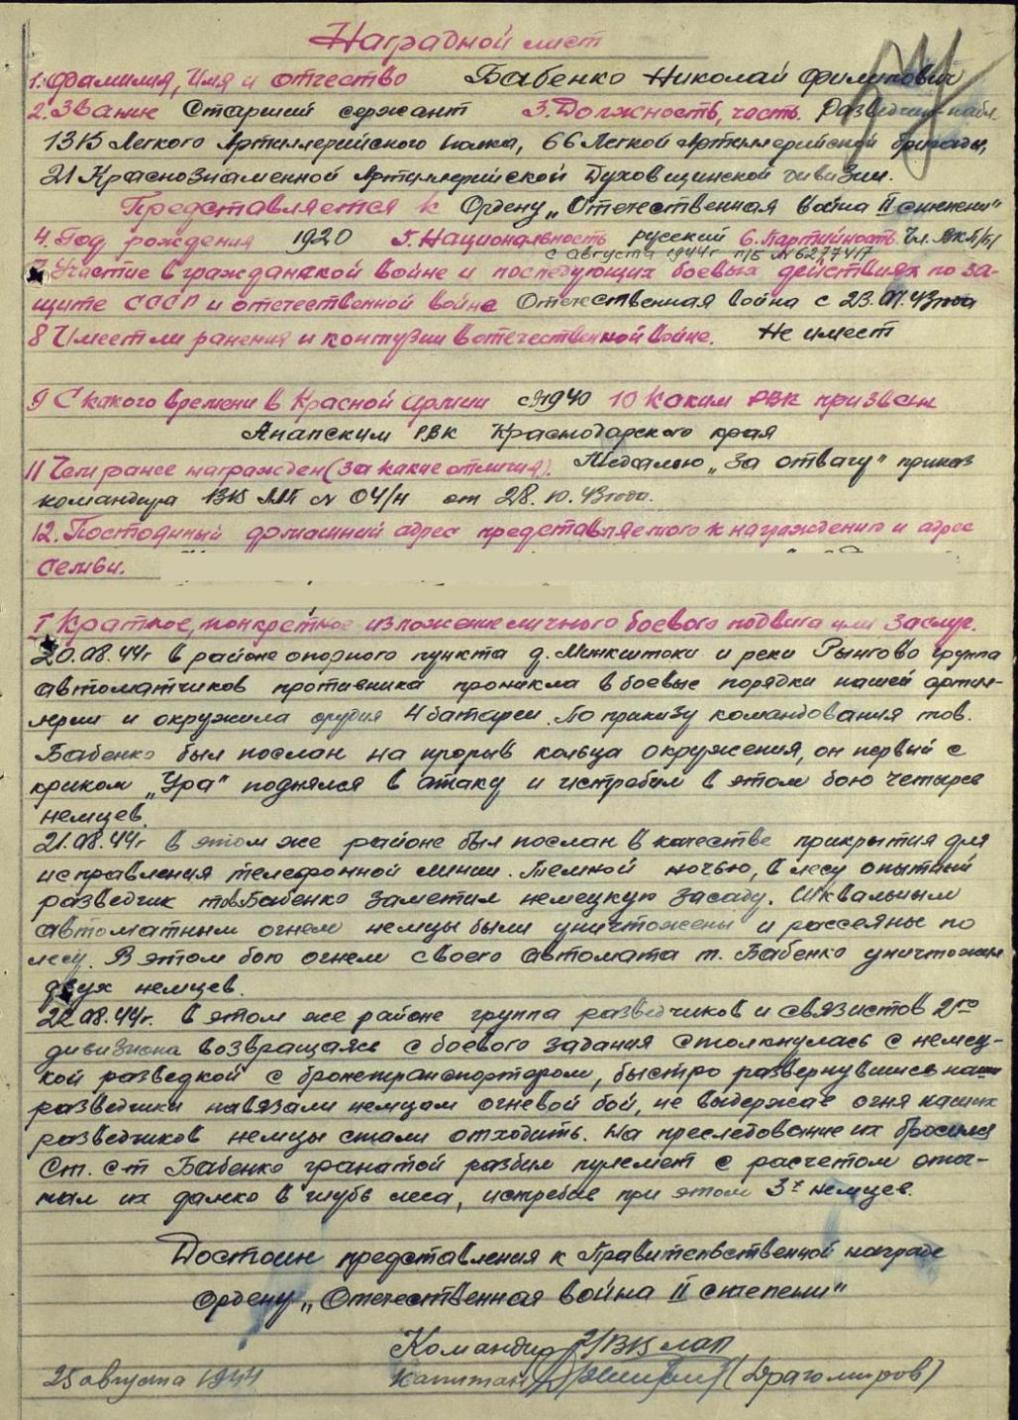 Наградной лист
1. Фамилия, Имя и отчество Бабенко Николай Филипович
2. Звание Старший сержант 3. Должность, часть. Разведчик-набл.
1315 Легкого Артиллерийского полка, 66 Легкой Артиллерийской бригады,
21 Краснознаменной Артиллерийской Духовщинской дивизии.
Представляется к Ордену „Отечественная война II степени"
4. Год рождения 1920 5. Национальность русский 6. Партийность Чл. ВКП/б/
с августа 1944г п/б № 6277417
7. Участие в гражданской войне и последующих боевых действиях по за-
щите СССР и отечественной войне Отечественная война с 23. 43 года
8 Имеет ли ранения и контузии в отечественной войне. Не имеет
9 С какого времени в Красной Армии с 1940 10 Каким РВК призван
Анапским РВК Краснодарского края
11 Чем ранее награжден (за какие отличия). Медалью „За отвагу" приказ
командира 1315 ЛАП № 04/н от 28. 10. 43 года.
12. Постоянный домашний адрес представляемого к награждению и адрес
семьи.
I Краткое, конкретное изложение личного боевого подвига или заслуг.
20.08.44г в районе опорного пункта д. Минкштоки и реки Рынгово группа
автоматчиков противника проникла в боевые порядки нашей артил-
лерии и окружила орудия 4 батареи. По приказу командования тов.
Бабенко был послан на прорыв кольца окружения, он первый с
криком „Ура" поднялся в атаку и истребил в этом бою четырех
немцев.
21.08.44г в этом же районе был послан в качестве прикрытия для
исправления телефонной линии. Темной ночью, в лесу опытный
разведчик тов Бабенко заметил немецкую засаду. Шквальным
автоматным огнем немцы были уничтожены и рассеяны по
лесу. В этом бою огнем своего автомата т. Бабенко уничтожил
двух немцев.
22.08.44г. в этом же районе группа разведчиков и связистов 2го
дивизиона возвращаясь с боевого задания столкнулась с немец-
кой разведкой с бронетранспортером, быстро развернувшись наши
разведчики навязали немцам огневой бой, не выдержав огня наших
разведчиков немцы стали отходить. На преследование их бросился
Ст. с-т Бабенко гранатой разбил пулемет с расчетом отог-
нал их далеко в глубь леса, истребив при этом 3х немцев.
Достоин представления к Правительственной награде
Ордену „Отечественная война II степени"
Командир 1315 ЛАП
25 августа 1944 капитан (Драгомиров)